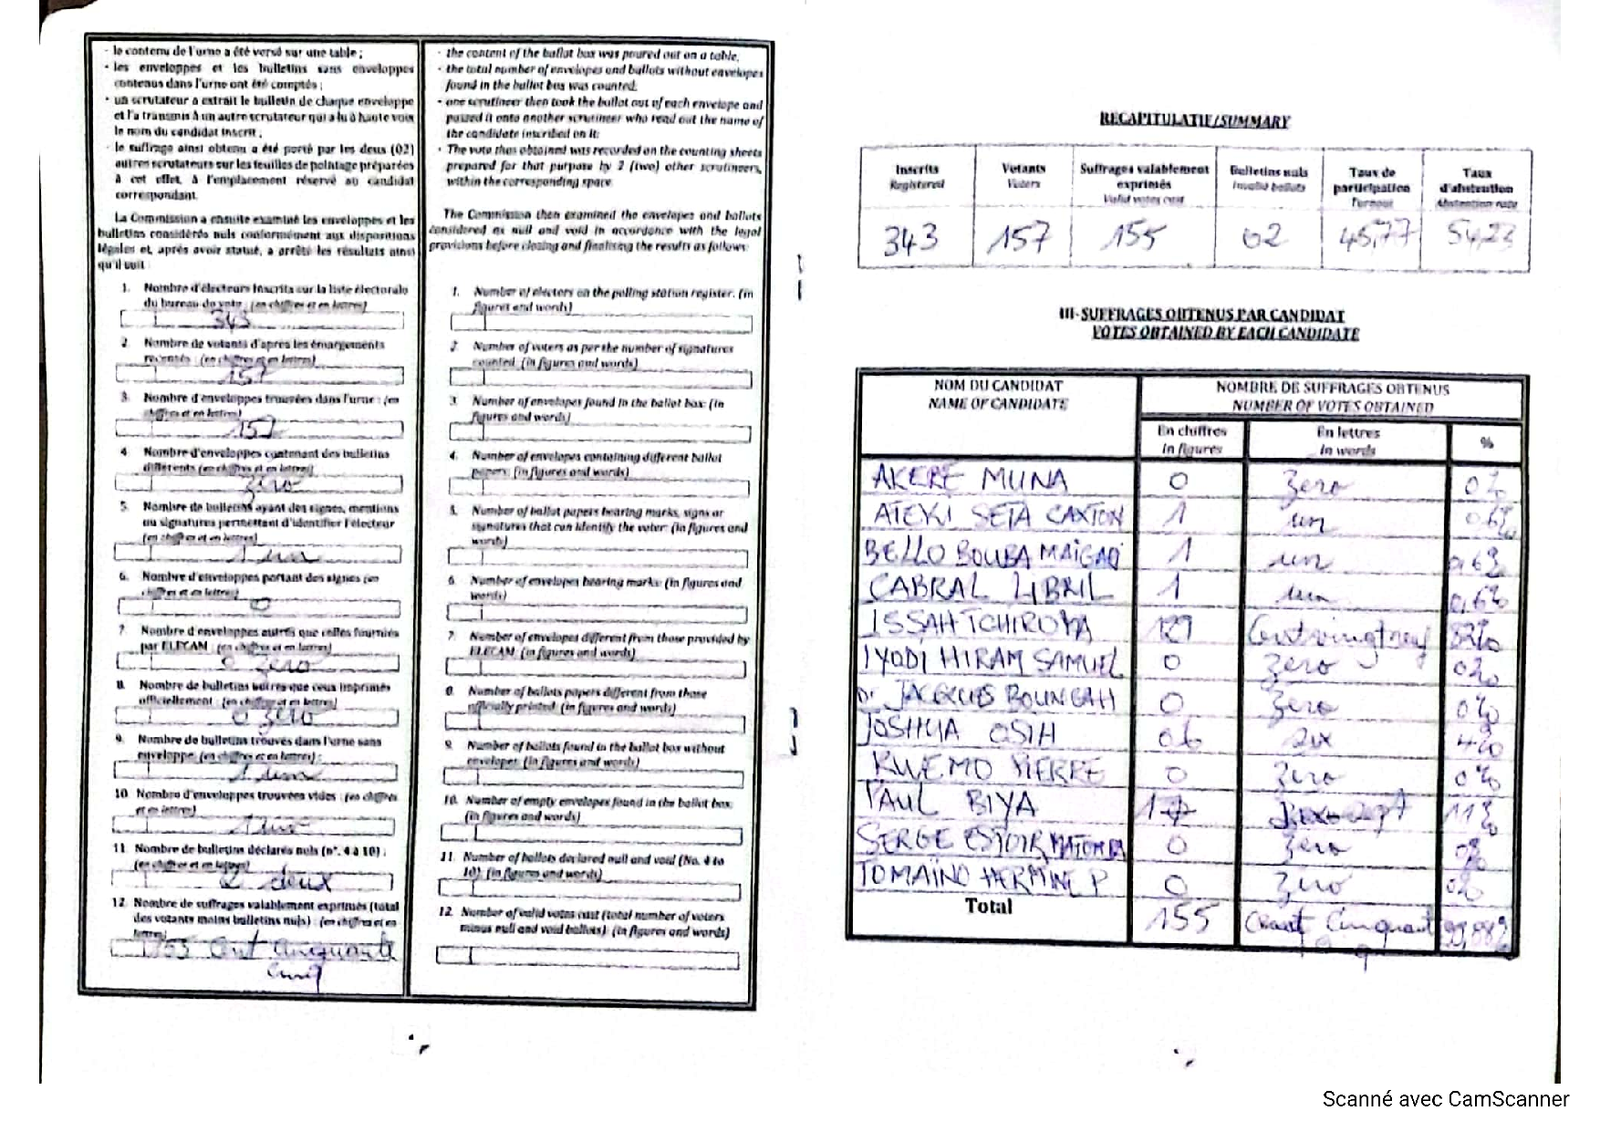 - le contenu de l'urne a été versé sur une table ;
- les enveloppes et les bulletins sans enveloppes
contenus dans l'urne ont été comptés ;
- un scrutateur a extrait le bulletin de chaque enveloppe
et l'a transmis à un autre scrutateur qui a lu à haute voix
le nom du candidat inscrit ;
- le suffrage ainsi obtenu a été porté par les deux (02)
autres scrutateurs sur les feuilles de pointage préparées
à cet effet, à l'emplacement réservé au candidat
correspondant.
La Commission a ensuite examiné les enveloppes et les
bulletins considérés nuls conformément aux dispositions
légales et, après avoir statué, a arrêté les résultats ainsi
qu'il suit
1. Nombre d'électeurs inscrits sur la liste électorale
du bureau de vote : (en chiffres et en lettres)
343
2. Nombre de votants d'après les émargements
recensés : (en chiffres et en lettres)
157
3. Nombre d'enveloppes trouvées dans l'urne : (en
chiffres et en lettres)
157
4. Nombre d'enveloppes contenant des bulletins
différents (en chiffres et en lettres)
zero
5. Nombre de bulletins ayant des signes, mentions
ou signatures permettant d'identifier l'électeur
(en chiffres et en lettres)
1 un
6. Nombre d'enveloppes portant des signes (en
chiffres et en lettres)
0
7. Nombre d'enveloppes autres que celles fournies
par ELECAM : (en chiffres et en lettres)
0 zero
8. Nombre de bulletins autres que ceux imprimés
officiellement : (en chiffres et en lettres)
0 zero
9. Nombre de bulletins trouvés dans l'urne sans
enveloppe: (en chiffres et en lettres) :
1 un
10. Nombre d'enveloppes trouvées vides : (en chiffres
et en lettres)
11. Nombre de bulletins déclarés nuls (n°. 4 à 10) ;
(en chiffres et en lettres)
2 deux
12. Nombre de suffrages valablement exprimés (total
des votants moins bulletins nuls) : (en chiffres et en
lettres)
155 Cent Cinquante
Cinq
- the content of the ballot box was poured out on a table,
- the total number of envelopes and ballots without envelopes
found in the ballot box was counted;
- one scrutineer then took the ballot out of each envelope and
passed it onto another scrutineer who read out the name of
the candidate inscribed on it;
- The vote thus obtained was recorded on the counting sheets
prepared for that purpose by 2 (two) other scrutineers,
within the corresponding space
The Commission then examined the envelopes and ballots
considered as null and void in accordance with the legal
provisions before closing and finalising the results as follows:
1. Number of electors on the polling station register. (in
figures and words)
2. Number of voters as per the number of signatures
counted: (in figures and words)
3. Number of envelopes found in the ballot box: (in
figures and words)
4. Number of envelopes containing different ballot
papers: (in figures and words)
5. Number of ballot papers bearing marks, signs or
signatures that can identify the voter: (in figures and
words)
6. Number of envelopes bearing marks: (in figures and
words)
7. Number of envelopes different from those provided by
ELECAM: (in figures and words)
8. Number of ballots papers different from those
officially printed: (in figures and words)
9. Number of ballots found in the ballot box without
envelopes: (in figures and words)
10. Number of empty envelopes found in the ballot box:
(in figures and words)
11. Number of ballots declared null and void (No. 4 to
10): (in figures and words)
12. Number of valid votes cast (total number of voters
minus null and void ballots): (in figures and words)
RECAPITULATIF/SUMMARY
Inscrits Votants Suffrages valablement exprimés Bulletins nuls Taux de participation Taux d'abstention
Registered Voters Valid votes cast Invalid ballots Turnout Abstention rate
343 157 155 02 45,77 54,23
III- SUFFRAGES OBTENUS PAR CANDIDAT
VOTES OBTAINED BY EACH CANDIDATE
NOM DU CANDIDAT NOMBRE DE SUFFRAGES OBTENUS
NAME OF CANDIDATE NUMBER OF VOTES OBTAINED
En chiffres En lettres %
in figures in words
AKERE MUNA 0 Zero 0%
ATEKI SETA CAXTON 1 un 0,6%
BELLO BOUBA MAIGARI 1 un 0,6%
CABRAL LIBRIL 1 un 0,6%
ISSAH TCHIROMA 129 Cent vingt neuf 82%
IYODI HIRAM SAMUEL 0 zero 0%
Dr JACQUES BOUNGAH 0 Zero 0%
JOSHUA OSIH 06 six 4%
KWEMO PIERRE 0 Zero 0%
PAUL BIYA 17 Dix sept 11%
SERGE ESPOIR MATOMBA 0 Zero 0%
TOMAÏNO HERMINE P 0 Zero 0%
Total 155 Cent Cinquant 99,88%
Scanné avec CamScanner